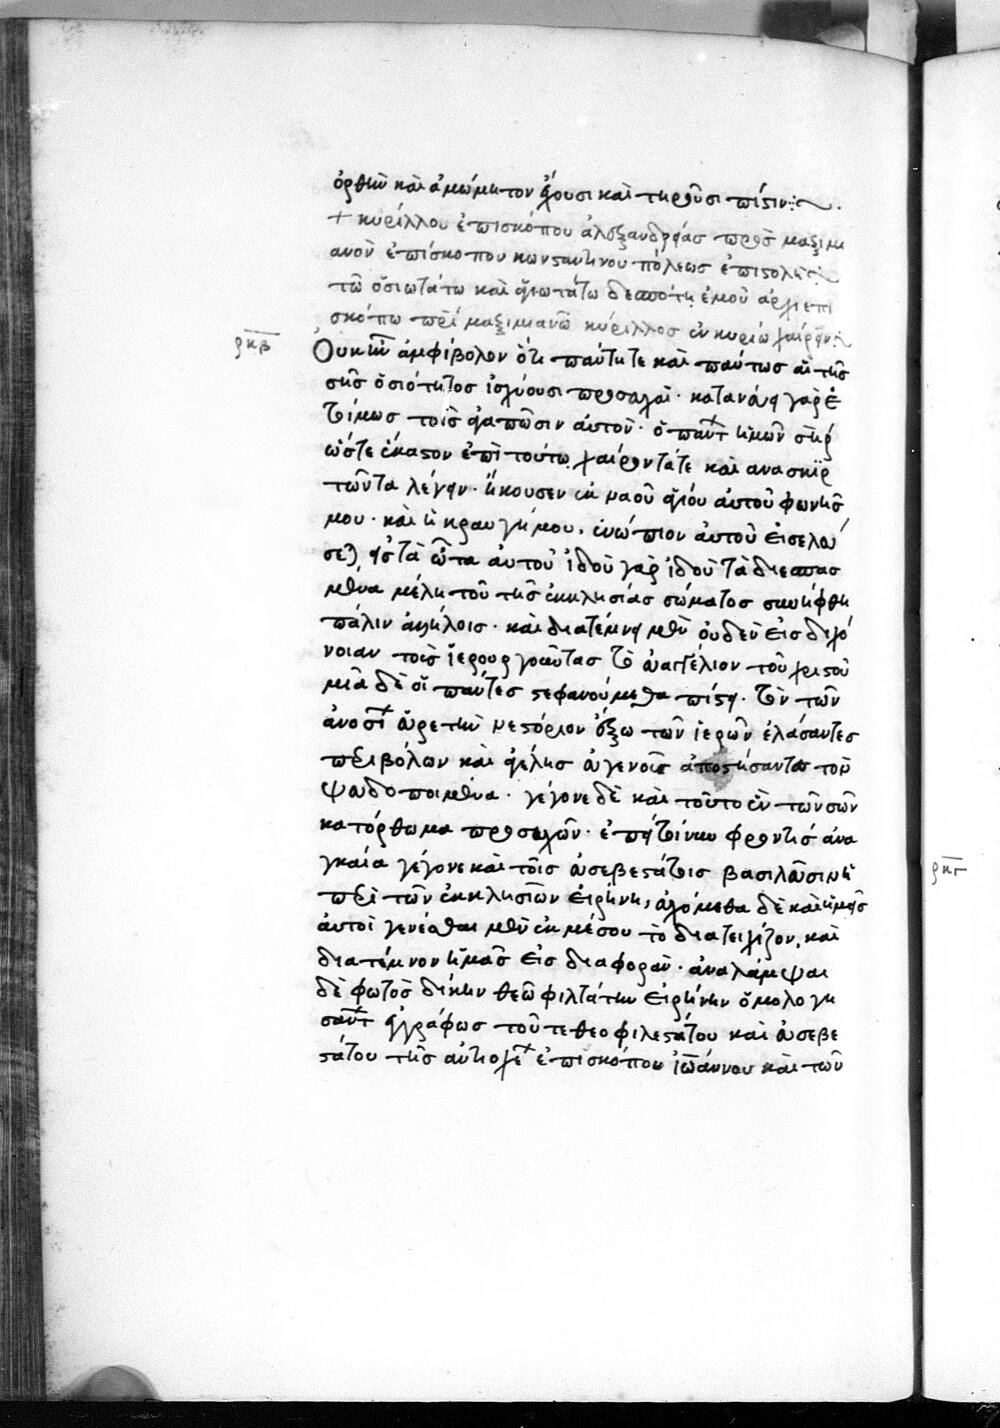 ὀρθὴν καὶ ἀμώμητον ἔχουσι καὶ τηροῦσι πίστιν:
+ κυρίλλου ἐπισκόπου ἀλεξανδρείας πρὸς μαξιμι
ανὸν ἐπίσκοπον κωνσταντίνου πόλεως ἐπιστολή:
τῶ ὁσιωτάτω καὶ ἁγιωτάτω δεσπότη ἐμοῦ ἀρχιεπι
σκόπω πρϊ μαξιμιανῶ κύριλλος ἐν κυρίω χαίρειν:
ρκβ
Οὐκ ἦν ἀμφίβολον ὅτι πάντη τε καὶ πάντως αἱ τῆς
σῆς ὁσιότητος ἰσχύουσι προσευχαὶ· κατανεύει γὰρ ἑ
τοίμως τοῖς ἀγαπῶσιν αὐτὸν· ὁ πάντ ἡμῶν σηρ
ὥστε ἕκαστον ἐπὶ τούτω χαίροντά τε καὶ ἀνασκιρ
τῶντα λέγειν· ἤκουσεν ἐκ ναοῦ ἁγίου αὐτοῦ φωνῆς
μου· καὶ ἡ κραυγή μου, ἐνώπιον αὐτοῦ εἰσελεύ
σεται εἰς τὰ ὦτα αὐτοῦ ἰδοὺ γὰρ ἰδοὺ τὰ διεσπασ
μένα μέλη τοῦ τῆς ἐκκλησίας σώματος συνήφθη
πάλιν ἀλλήλοις· καὶ διατέμνει μὲν οὐδὲν εἰς διχό
νοιαν τοὺς ἱερουργοῦντας τὸ εὐαγγέλιον τοῦ χριστοῦ
μιᾶ δὲ οἱ πάντες στεφανούμεθα πίστει· τὸν τῶν
ἀνοσί αἱρετικὸν νεστόριον ἔξω τῶν ἱερῶν ἐλάσαντες
περιβόλων καὶ ἀγέλης εὐγενοῦς ἀποστήσαντες τὸν
ψευδοποιμένα· γέγονε δὲ καὶ τοῦτο ἐκ τῶν σῶν
κατόρθωμα προσευχῶν· ἐπειδὴ φροντὶς ἀνα
γκαία γέγονε καὶ τοῖς εὐσεβεστάτοις βασιλεῦσιν ἡ
περὶ τῶν ἐκκλησιῶν εἰρήνη, εὐχόμεθα δὲ καὶ ἡμεῖς
αὐτοὶ γενέσθαι μὲν ἐκ μέσου τὸ διατειχίζον, καὶ
διατέμνον ἡμᾶς εἰς διαφορὰν· ἀναλάμψαι
δὲ φωτὸς δίκην θεῶ φιλτάτην εἰρήνην ὁμολογη
σάντ ἐγγράφως τοῦ τε θεοφιλεστάτου καὶ εὐσεβε
στάτου τῆς ἀντιοχέ ἐπισκόπου ἰωάννου καὶ τῶν
ρκγ